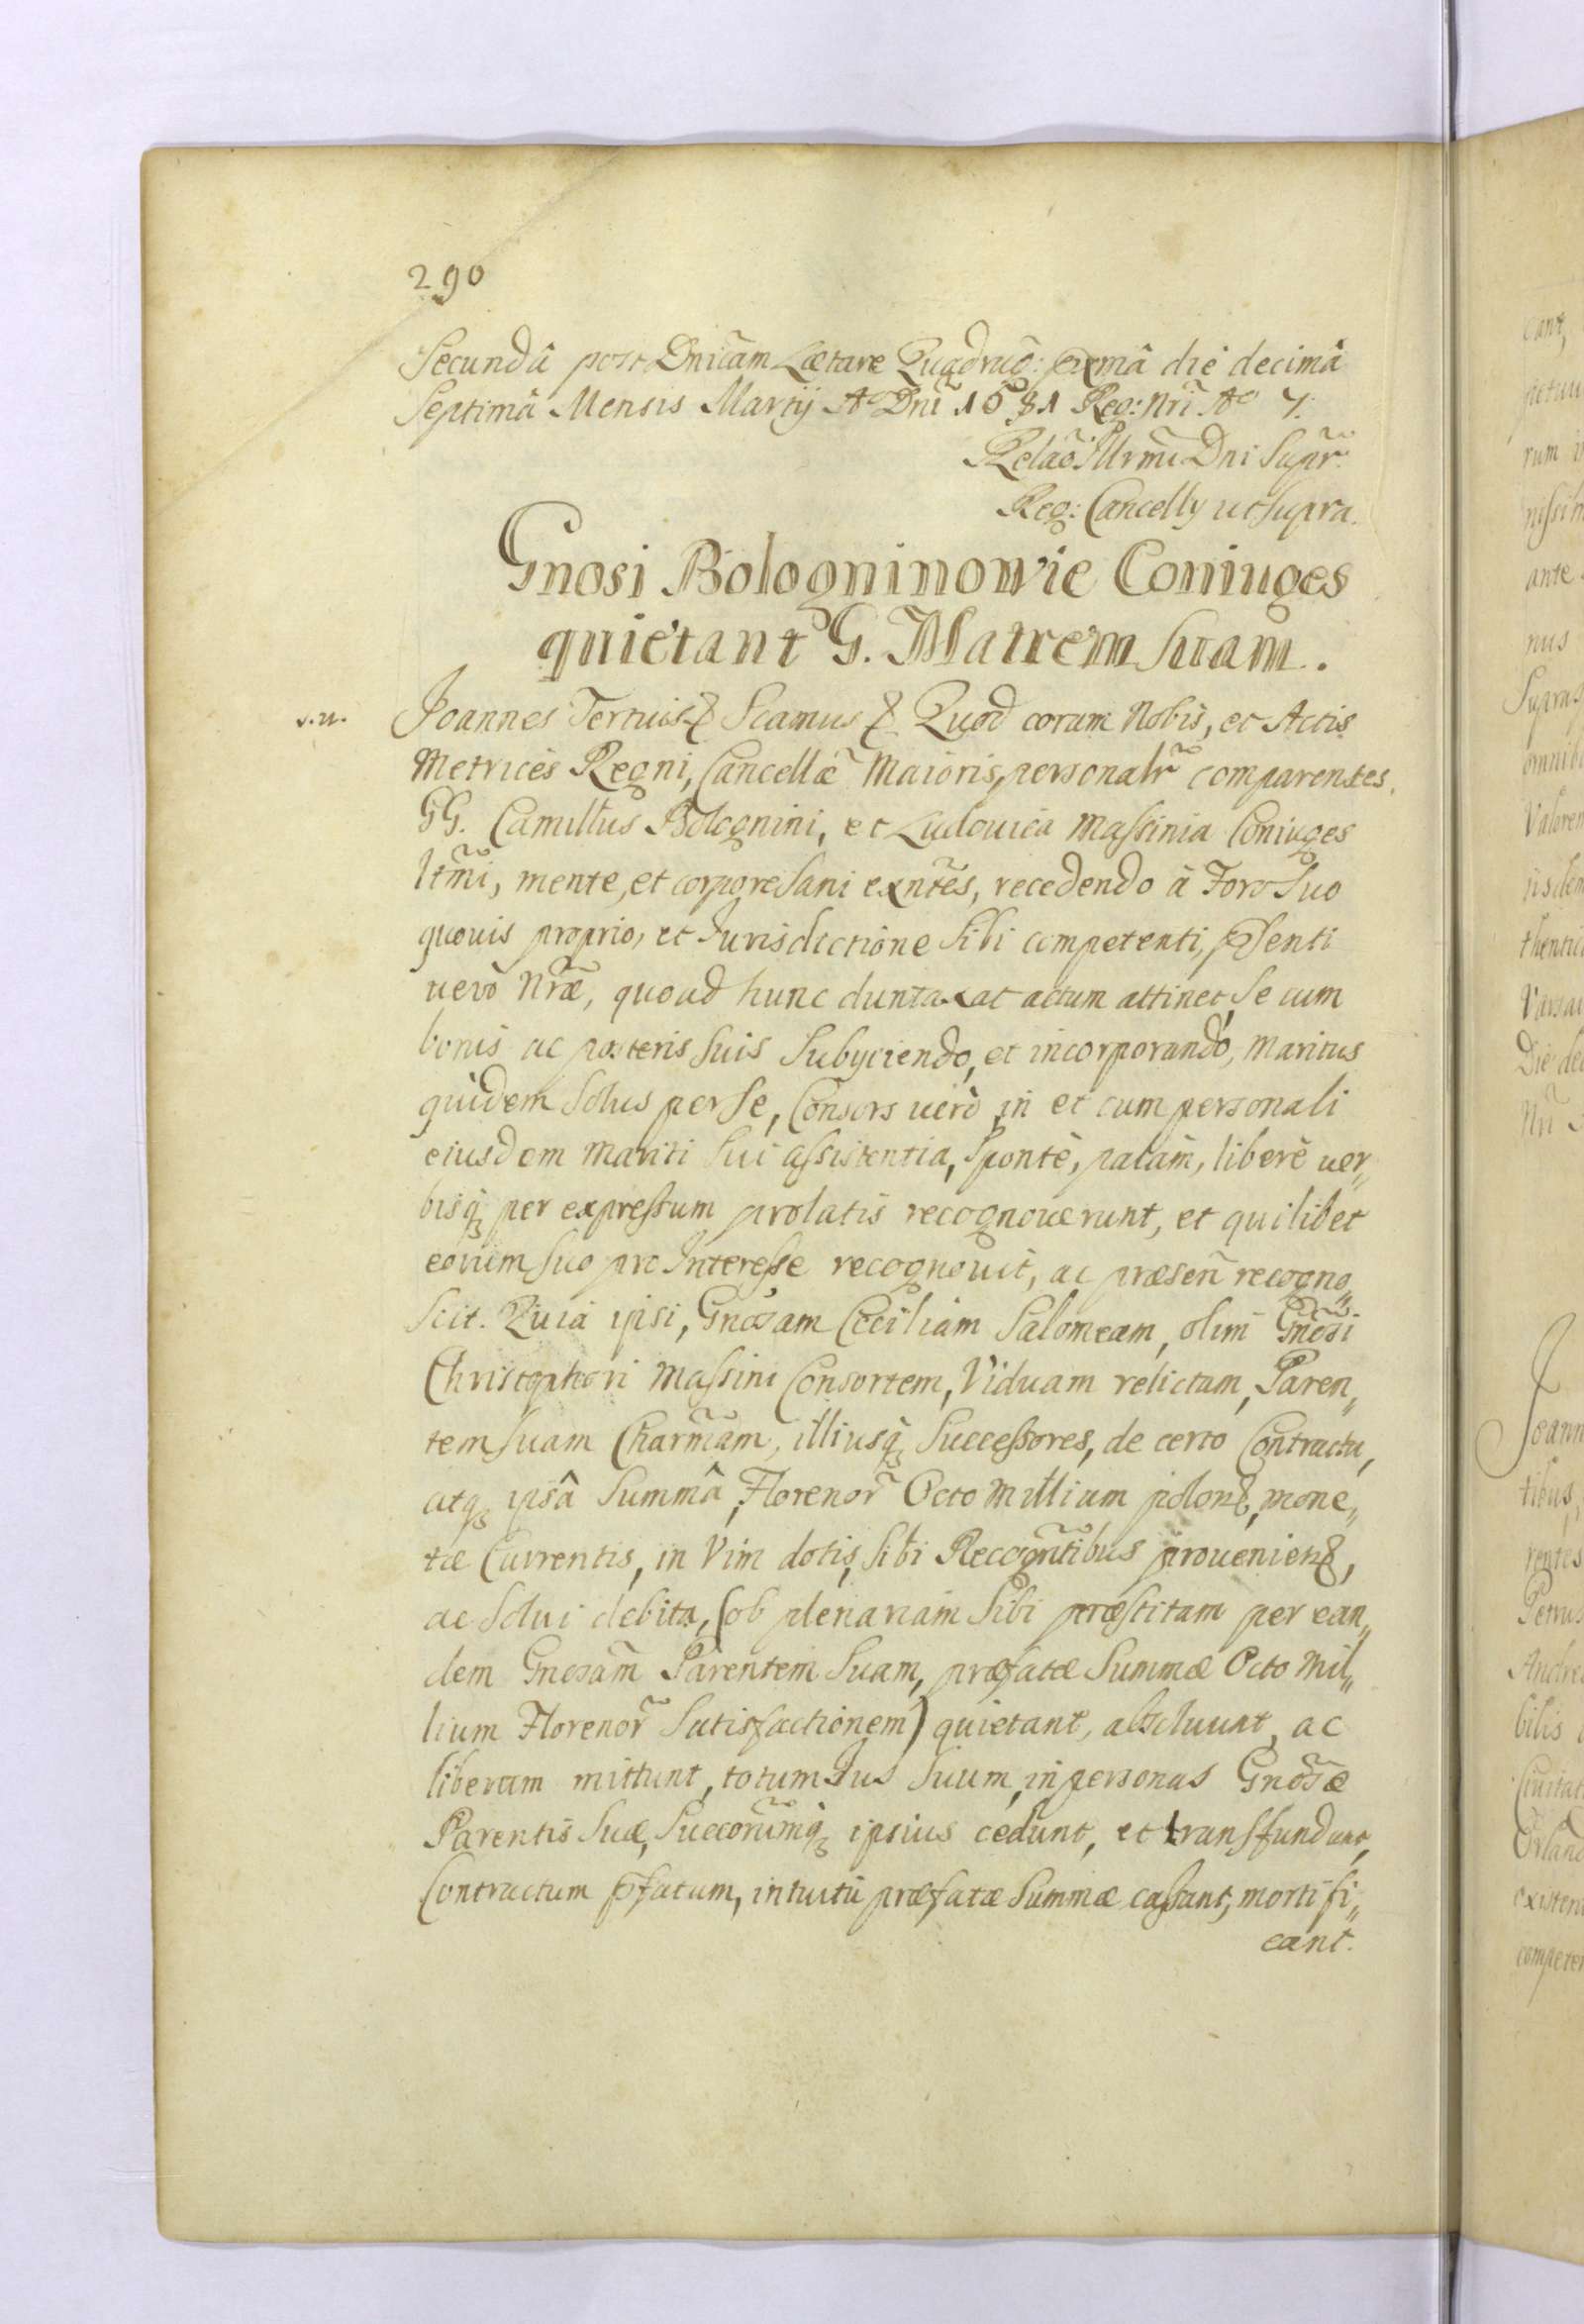 290
Secundâ post Dnicam Lætare Quadruâ: pxmâ die decimâ
Septimâ Mensis Martij Aº Dni 1681 Reg: Nri Aº 7.
Relaõ Illrmi Dni Supr.
Reg: Cancelly ut supra.
Gnosi Bologninowie Coniuges
quietant G. Matrem suam.
Joannes Tertuis & Scamus & Quod coram Nobis, et Actis
Metrices Regni, Cancellæ Maioris, personalr comparentes.
GG. Camillus Bolognini, et Ludouica Massinia Coniuges
ltmi, mente, et corpore sani exntes, recedendo à Foro suo
quouis proprio, et Jurisdictione sibi competenti, psenti
uerò Nræ, quoad hunc duntaxat actum attinet, se cum
bonis ac posteris suis subyciendo, et incorporando, maritus
quidem solus per se, Consors uerò in et cum personali
eiusdem mariti sui assistentia, spontè, palàm, liberè uer„
bisq; per expressum prolatis recognouerunt, et quilibet
eorum suo pro Interesse recognouit, ac præsen recogno„
scit. Quia ipsi, Gnosam Cæciliam Salomeam, olim Gnosi
Christophori Massini Consortem, Viduam relictam, Paren„
tem suam Charmam, illiusq; Successores, de certo Contractu,
atq; ipsâ Summâ, Florenor Octo Millium polon&, mone„
tæ Currentis, in Vim dotis, sibi Recogntibus prouenien&,
ac solui debita, (ob plenariam sibi præstitam per ean„
dem Gnosam Parentem suam, præfatæ Summæ Octo Mil„
lium Florenor Satisfactionem) quietant, absoluunt, ac
liberam mittunt, totum Jus suum, in personas Gnosæ
Parentis suæ, Succorumq; ipsius cedunt, et transfundunt,
Contractum pfatum, intuitu præfatæ Summæ cassant, mortifi„
cant.